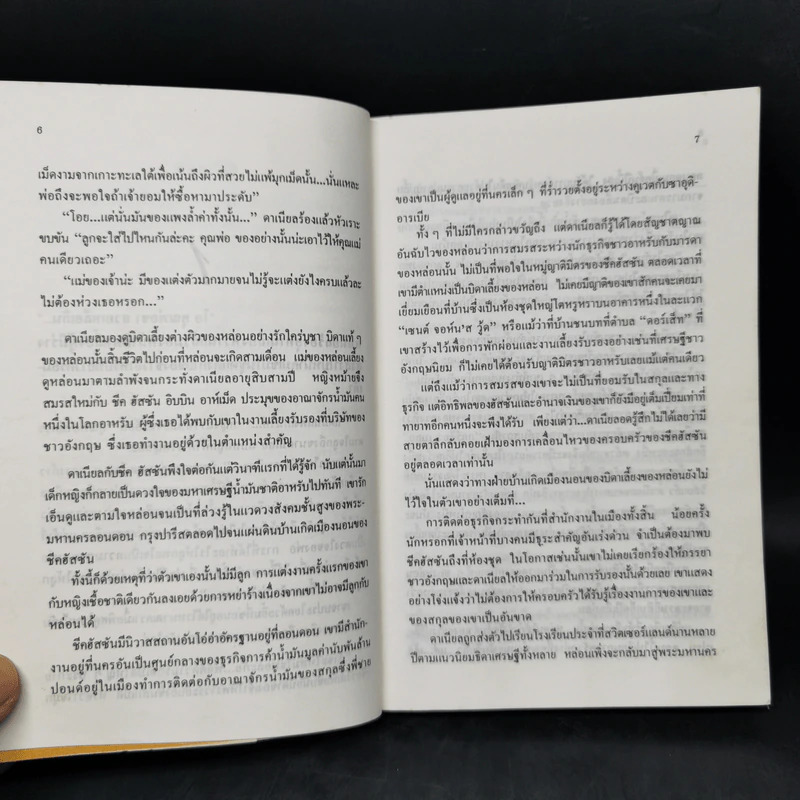 6
เม็ดงามจากเกาะทะเลใต้เพื่อเน้นถึงผิวที่สวยไม่แพ้มุกเม็ดนั้น...นั่นแหละ
พ่อถึงจะพอใจถ้าเจ้ายอมให้ซื้อหามาประดับ”
“โอย...แต่นั่นมันของแพงล้ำค่าทั้งนั้น...” ดาเนียลร้องแล้วหัวเราะ
ขบขัน “ลูกจะใส่ไปไหนกันล่ะคะ คุณพ่อ ของอย่างนั้นน่ะเอาไว้ให้คุณแม่
คนเดียวเถอะ”
“แม่ของเจ้าน่ะ มีของแต่งตัวมากมายจนไม่รู้จะแต่งยังไงครบแล้วละ
ไม่ต้องห่วงเธอหรอก...”
ดาเนียลมองดูบิดาเลี้ยงต่างผิวของหล่อนอย่างรักใคร่บูชา บิดาแท้ ๆ
ของหล่อนนั้นสิ้นชีวิตไปก่อนที่หล่อนจะเกิดสามเดือน แม่ของหล่อนเลี้ยง
ดูหล่อนมาตามลำพังจนกระทั่งดาเนียลอายุสิบสามปี หญิงหม้ายจึง
สมรสใหม่กับ ชีค ฮัสซัน อิบบิน อาห์เม็ด ประมุขของอาณาจักรน้ำมันคน
หนึ่งในโลกอาหรับ ผู้ซึ่งเธอได้พบกับเขาในงานเลี้ยงรับรองที่บริษัทของ
ชาวอังกฤษ ซึ่งเธอทำงานอยู่ด้วยในตำแหน่งสำคัญ
ดาเนียลกับชีค ฮัสซันพึงใจต่อกันแต่วินาทีแรกที่ได้รู้จัก นับแต่นั้นมา
เด็กหญิงก็กลายเป็นดวงใจของมหาเศรษฐีน้ำมันชาติอาหรับไปทันที เขารัก
เอ็นดูและตามใจหล่อนจนเป็นที่ล่วงรู้ในแวดวงสังคมชั้นสูงของพระ-
มหานครลอนดอน กรุงปารีสตลอดไปจนแผ่นดินบ้านเกิดเมืองนอนของ
ชีคฮัสซัน
ทั้งนี้ก็ด้วยเหตุที่ว่าตัวเขาเองนั้นไม่มีลูก การแต่งงานครั้งแรกของเขา
กับหญิงเชื้อชาติเดียวกันลงเอยด้วยการหย่าร้างเนื่องจากเขาไม่อาจมีลูกกับ
หล่อนได้
ชีคฮัสซันมีนิวาสสถานอันโอ่อ่าอัครฐานอยู่ที่ลอนดอน เขามีสำนัก-
งานอยู่ที่นครอันเป็นศูนย์กลางของธุรกิจการค้าน้ำมันมูลค่านับพันล้าน
ปอนด์อยู่ในเมืองทำการติดต่อกับอาณาจักรน้ำมันของสกุลซึ่งพี่ชาย
7
ของเขาเป็นผู้ดูแลอยู่ที่นครเล็ก ๆ ที่ร่ำรวยตั้งอยู่ระหว่างคูเวตกับซาอุดิ-
อารเบีย
ทั้ง ๆ ที่ไม่มีใครกล่าวขวัญถึง แต่ดาเนียลก็รู้ได้โดยสัญชาตญาณ
อันฉับไวของหล่อนว่าการสมรสระหว่างนักธุรกิจชาวอาหรับกับมารดา
ของหล่อนนั้น ไม่เป็นที่พอใจในหมู่ญาติมิตรของชีคฮัสซัน ตลอดเวลาที่
เขามีตำแหน่งเป็นบิดาเลี้ยงของหล่อน ไม่เคยมีญาติของเขาสักคนจะเคยมา
เยี่ยมเยือนที่บ้านซึ่งเป็นห้องชุดใหญ่โตหรูหราบนอาคารหนึ่งในละแวก
“เซนต์ จอห์น'ส วู้ด” หรือแม้ว่าที่บ้านชนบทที่ตำบล “ดอร์เส็ท” ที่
เขาสร้างไว้เพื่อการพักผ่อนและงานเลี้ยงรับรองอย่างเช่นที่เศรษฐีชาว
อังกฤษนิยม ก็ไม่เคยได้ต้อนรับญาติมิตรชาวอาหรับเลยแม้แต่คนเดียว
แต่ถึงแม้ว่าการสมรสของเขาจะไม่เป็นที่ยอมรับในสกุลและทาง
ธุรกิจ แต่อิทธิพลของฮัสซันและอำนาจเงินของเขาก็ยังมีอยู่เต็มเปี่ยมเท่าที่
ทายาทอีกคนหนึ่งจะพึงได้รับ เพียงแต่ว่า...ดาเนียลอดรู้สึกไม่ได้เลยว่ามี
สายตาลึกลับคอยเฝ้ามองการเคลื่อนไหวของครอบครัวของชีคฮัสซัน
อยู่ตลอดเวลาเท่านั้น
นั่นแสดงว่าทางฝ่ายบ้านเกิดเมืองนอนของบิดาเลี้ยงของหล่อนยังไม่
ไว้ใจในตัวเขาอย่างเต็มที่...
การติดต่อธุรกิจกระทำกันที่สำนักงานในเมืองทั้งสิ้น น้อยครั้ง
นักหรอกที่เจ้าหน้าที่บางคนมีธุระสำคัญอันเร่งด่วน จำเป็นต้องมาพบ
ชีคฮัสซันถึงที่ห้องชุด ในโอกาสเช่นนั้นเขาไม่เคยเรียกร้องให้ภรรยา
ชาวอังกฤษและดาเนียลให้ออกมาร่วมในการรับรองนั้นด้วยเลย เขาแสดง
อย่างโจ่งแจ้งว่าไม่ต้องการให้ครอบครัวได้รับรู้เรื่องงานการของเขาและ
ของสกุลของเขาเป็นอันขาด
ดาเนียลถูกส่งตัวไปเรียนโรงเรียนประจำที่สวิตเซอร์แลนด์นานหลาย
ปีตามแนวนิยมธิดาเศรษฐีทั้งหลาย หล่อนเพิ่งจะกลับมาสู่พระมหานคร